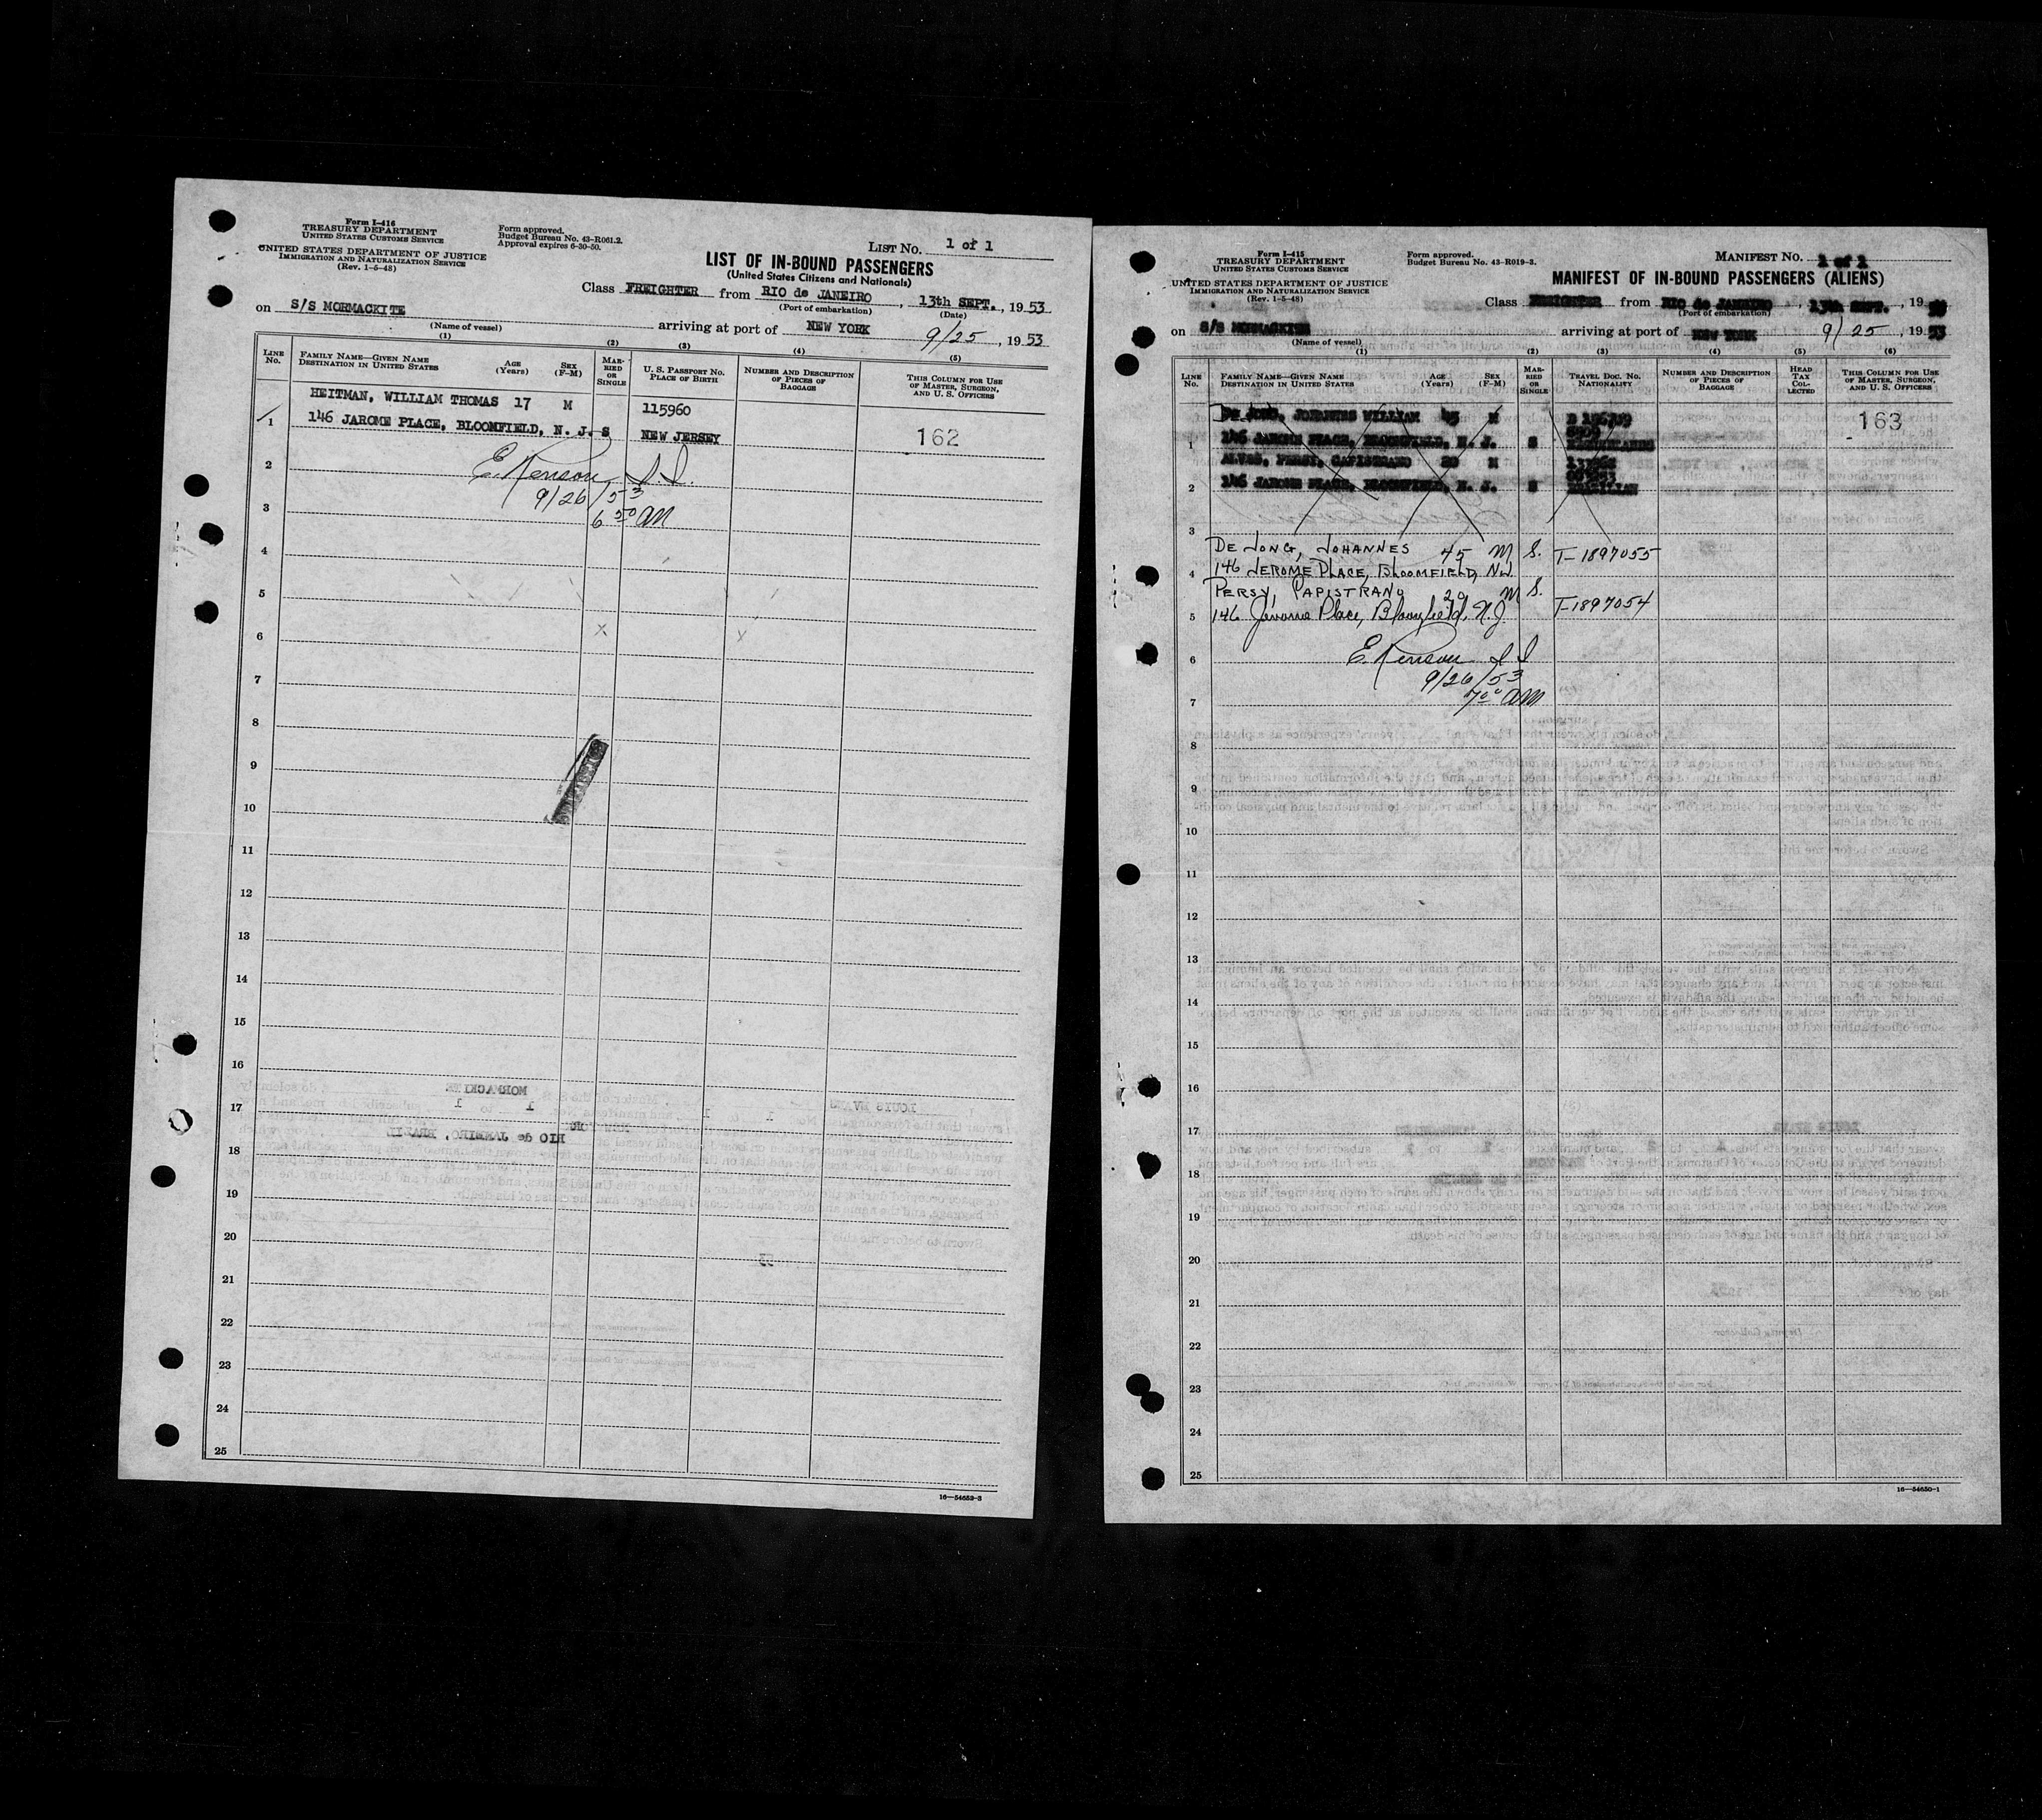 Form I-416
TREASURY DEPARTMENT
UNITED STATES CUSTOMS SERVICE
UNITED STATES DEPARTMENT OF JUSTICE
IMMIGRATION AND NATURALIZATION SERVICE
(Rev. 1-5-48)
Form approved.
Budget Bureau No. 43-R061.2.
Approval expires 6-30-50.
LIST NO. 1 of 1
LIST OF IN-BOUND PASSENGERS
(United States Citizens and Nationals)
Class FREIGHTER from RIO de JANEIRO, 13th SEPT., 1953
(Port of embarkation) (Date)
on S/S MORMACKITE arriving at port of NEW YORK 9/25, 1953
(Name of vessel)
(1) (2) (3) (4) (5)
LINE No.
FAMILY NAME—GIVEN NAME
DESTINATION IN UNITED STATES
AGE (Years)
SEX (F-M)
MARRIED OR SINGLE
U. S. PASSPORT NO.
PLACE OF BIRTH
NUMBER AND DESCRIPTION OF PIECES OF BAGGAGE
THIS COLUMN FOR USE OF MASTER, SURGEON, AND U. S. OFFICERS
HEITMAN, WILLIAM THOMAS 17 M 115960
1 146 JAROME PLACE, BLOOMFIELD, N. J. S NEW JERSEY 162
2 E. Kenson I.I.
9/26/53
3 6 50 AM
4
5
6
7
8
9
10
11
12
13
14
15
16
17
18
19
20
21
22
23
24
25
16—54652-3
Form I-415
TREASURY DEPARTMENT
UNITED STATES CUSTOMS SERVICE
UNITED STATES DEPARTMENT OF JUSTICE
IMMIGRATION AND NATURALIZATION SERVICE
(Rev. 1-5-48)
Form approved.
Budget Bureau No. 43-R019-3.
MANIFEST NO. 1 of 1
MANIFEST OF IN-BOUND PASSENGERS (ALIENS)
Class FREIGHTER from RIO de JANEIRO, 13th SEPT., 19
(Port of embarkation)
on S/S MORMACKITE arriving at port of NEW YORK 9/25, 1953
(Name of vessel)
(1) (2) (3) (4) (5) (6)
LINE No.
FAMILY NAME—GIVEN NAME
DESTINATION IN UNITED STATES
AGE (Years)
SEX (F-M)
MARRIED OR SINGLE
TRAVEL DOC. NO.
NATIONALITY
NUMBER AND DESCRIPTION OF PIECES OF BAGGAGE
HEAD TAX COLLECTED
THIS COLUMN FOR USE OF MASTER, SURGEON, AND U. S. OFFICERS
DE JONG, JOHANNES WILLIAM 45 M 163
1 146 JAROME PLACE, BLOOMFIELD, N. J. S NETHERLANDS
ALVES, PERSY, CAPISTRANO 20 M
2 146 JAROME PLACE, BLOOMFIELD, N. J. S BRAZILIAN
3
DE JONG, JOHANNES 45 M S. T-1897055
4 146 JEROME PLACE, BLOOMFIELD, NJ.
PERSY, PAPISTRANO 20 M S. T-1897054
5 146 Jerome Place, Bloomfield, N.J.
6 E. Kenson I I
9/26/53
7 7 00 AM
8
9
10
11
12
13
14
15
16
17
18
19
20
21
22
23
24
25
16—54650-1